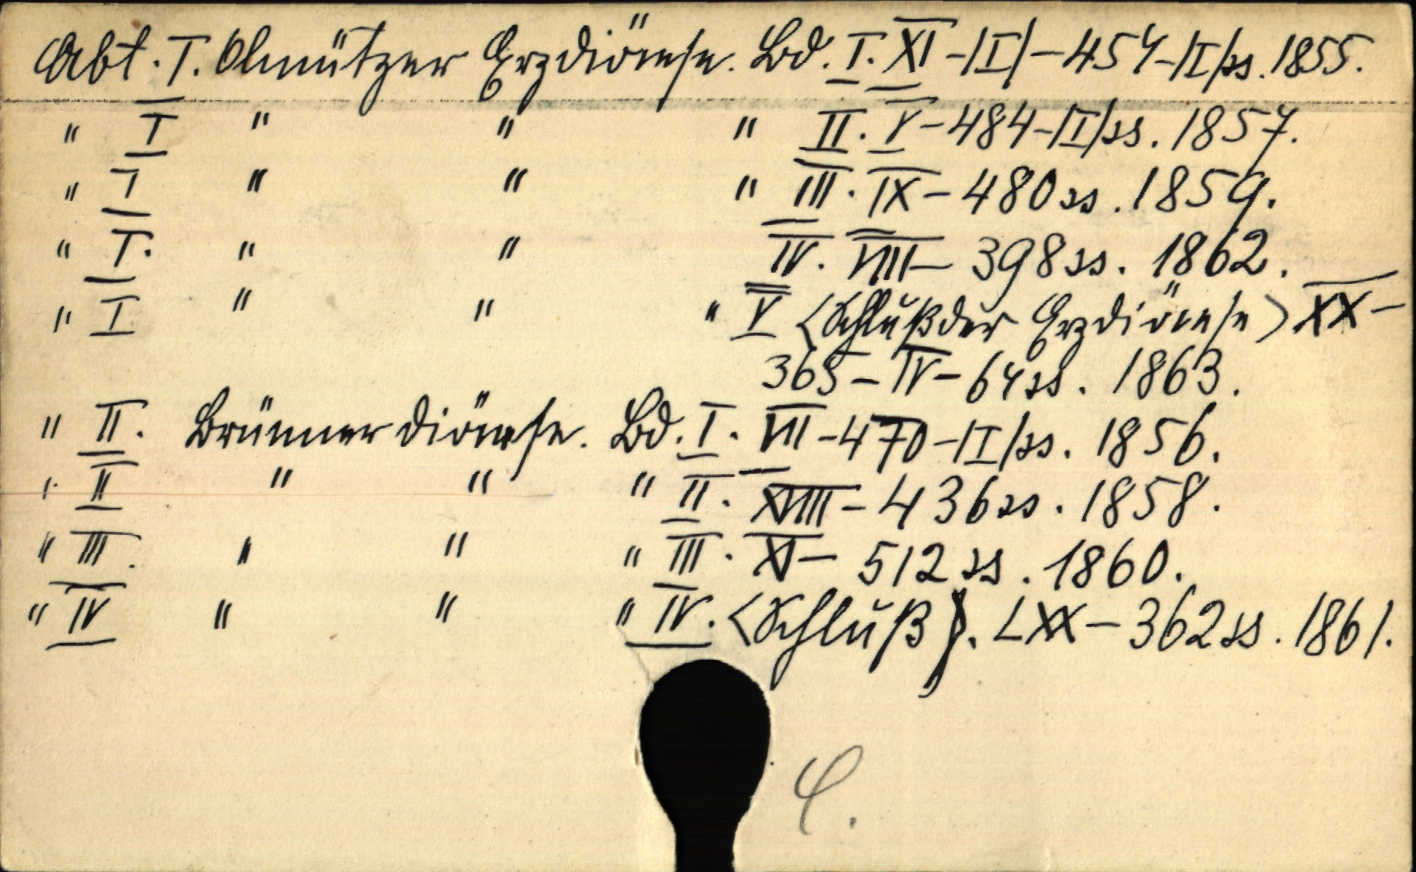 Abt. I. Olmützer Erzdiöcese. Bd. I. XI-|I|-457-|I|ss. 1855.
" I " " " II. V-484-|I|ss. 1857.
" I " " " III. IX-480ss. 1859.
" I. " " IV. VIII-398ss. 1862.
" I " " " V <Schluß der Erzdiöcese> XX-
365-IV-64ss. 1863.
" II. Brünner Diöcese. Bd. I. VII-470-|I|ss. 1856.
" II " " " II. XVIII-436ss. 1858.
" III. " " " III. XI-512ss. 1860.
" IV " " " IV. <Schluß>. LXX-362ss. 1861.